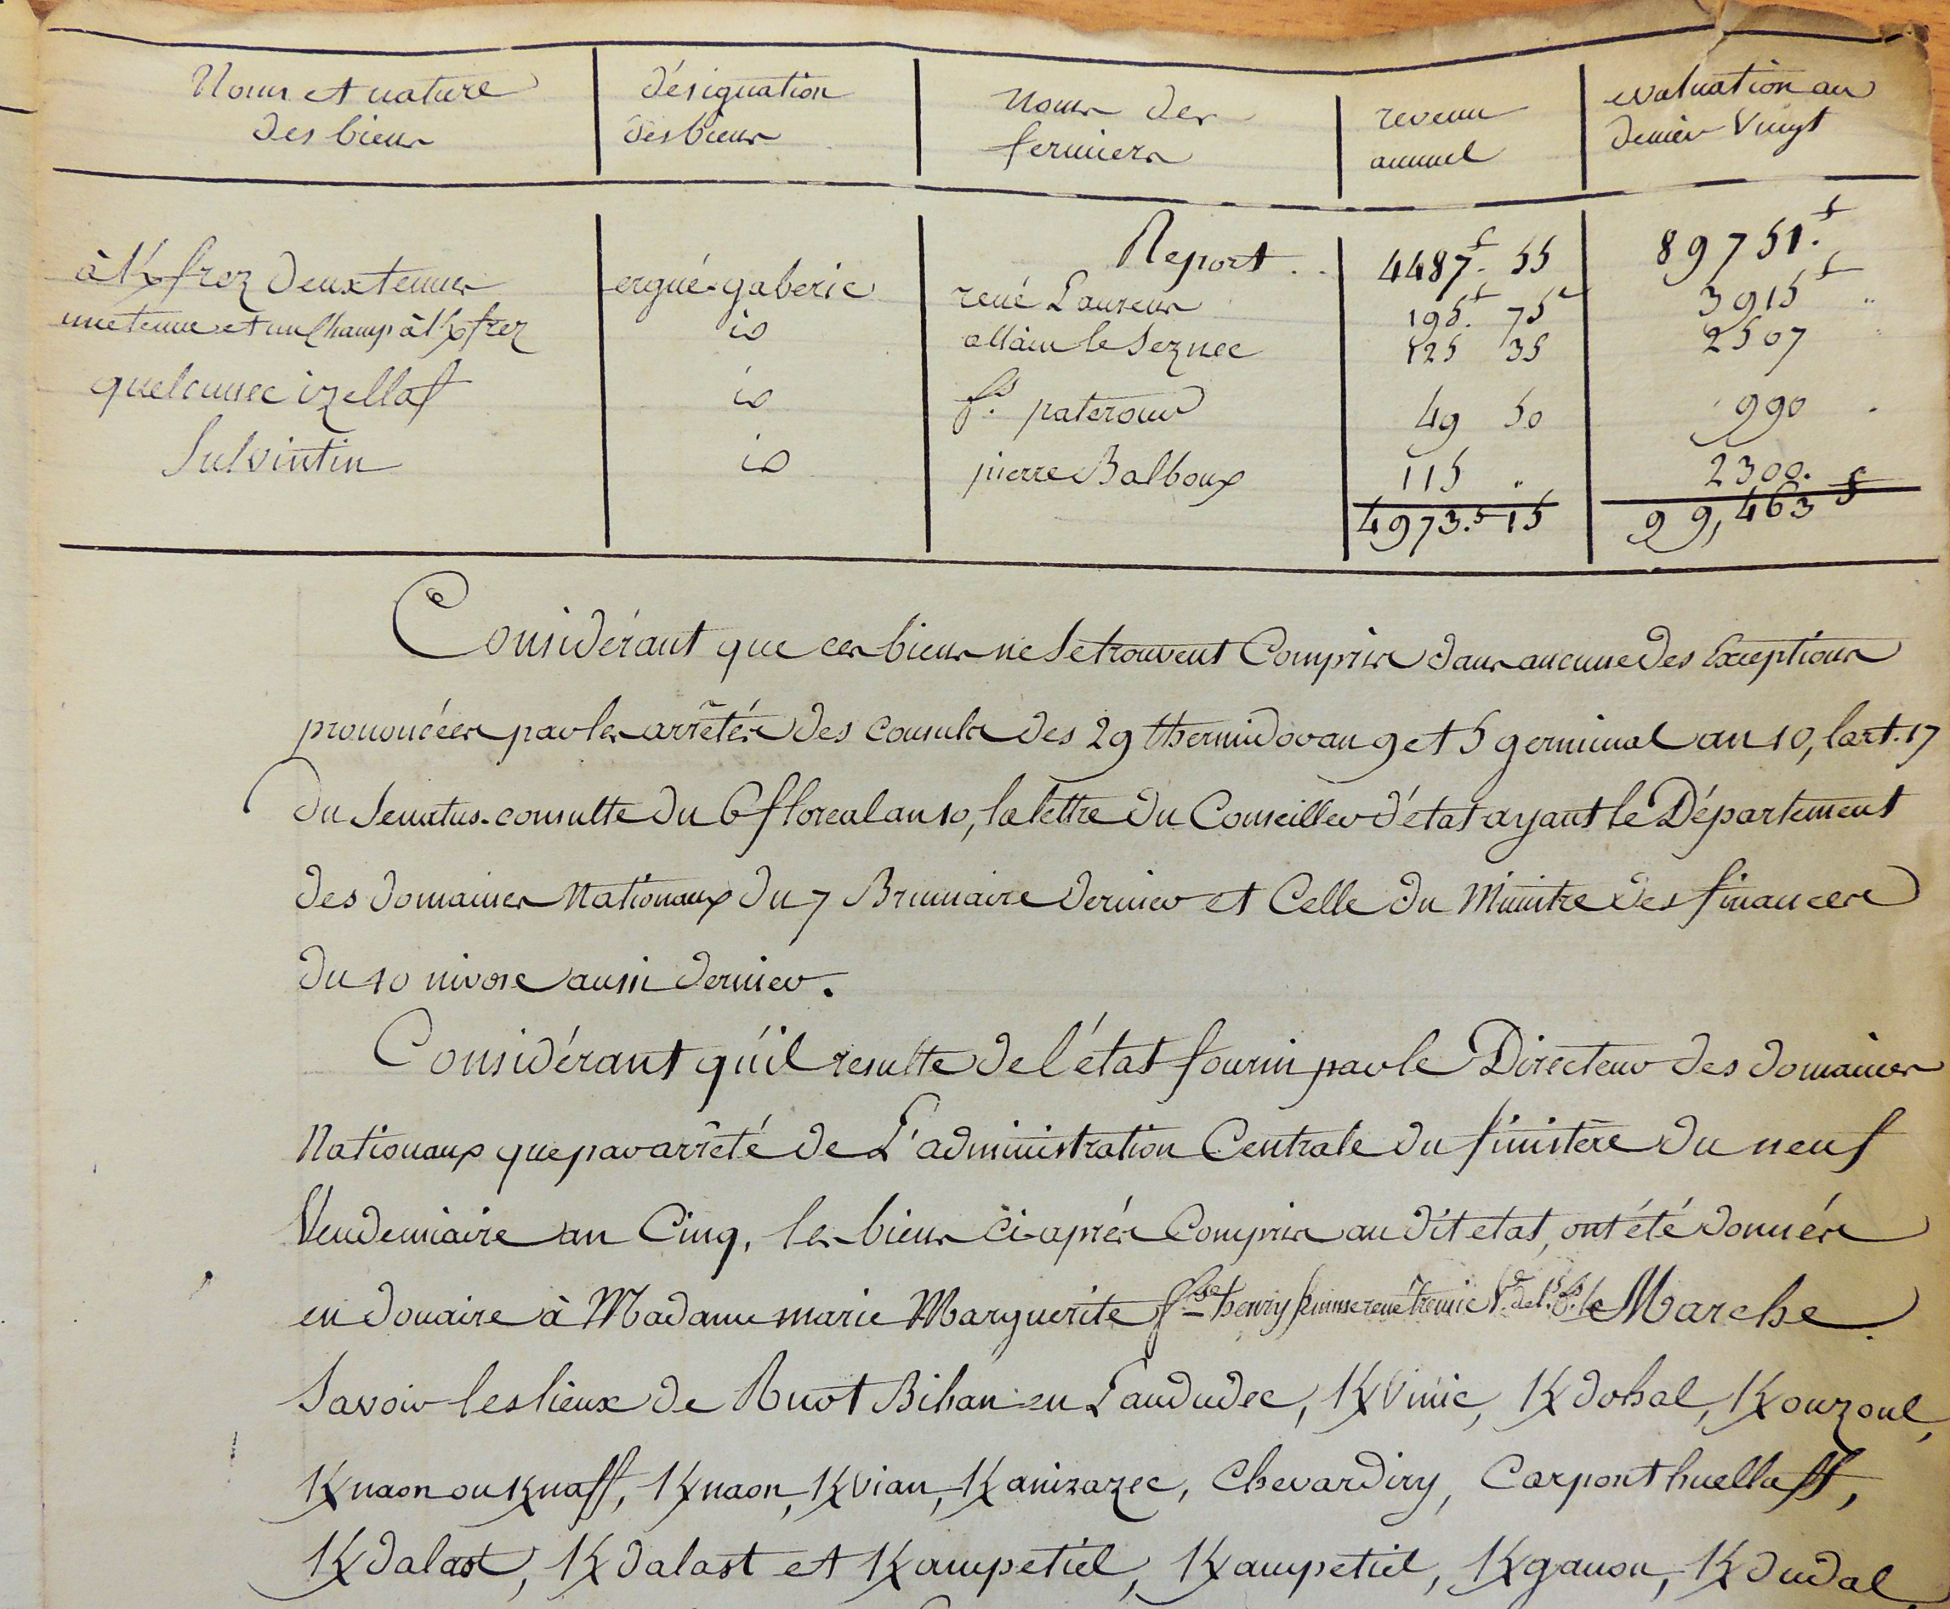 Noms et nature des biens | désignation des biens | Noms des fermiers | revenu annuel | evaluation au denier Vingt
Report .. 4487f. 55 89751.f
à Kfrez deux tenues ergué-gaberic rené Laurens 195f. 75c 3915f "
une tenue et un Champ à Kfrez id allain le Seznec 125 35 2507 "
quelennec izellaf id fs. paterour 49 50 990 .
Sulvintin id pierre Balboux 115 " 2300.
4973.f 15 99,463f
Considérant que ces biens ne se trouvent Compris dans aucune des Exceptions
prononcées par les arrêtés des consuls des 29 thermidor an 9 et 5 germinal an 10, l'art. 17
du Senatus-consulte du 6 floreal an 10, la lettre du Conseiller d'état ayant le Département
des domaines Nationaux du 7 Brumaire dernier et Celle du Ministre des finances
du 10 nivose aussi dernier.
Considérant qu'il resulte de l'état fourni par le Directeur des domaines
Nationaux que par arrêté de L'administration Centrale du finistère du neuf
Vendemiaire an Cinq, les biens ci-après Compris au dit etat, ont été donnés
en douaire à Madame marie Marguerite fse henry rené Ve de le Marche
Savoir les lieux de Ruot Bihan en Landudec, Kvinic, Kdohal, Kouzoul,
Knaon ou Knaff, Knaon, Kvian, Kanizazec, Chevardiry, Carpont huellaff,
Kdalast, Kdalast et Kampetiel, Kampetiel, Kganon, Kdudal,